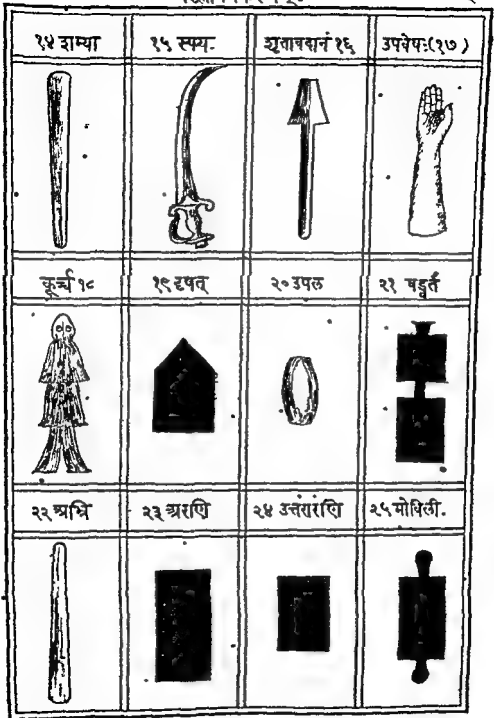 १४ शम्या
१५ स्फ्य.
शृतावदानं १६
उपवेषः(१७)
कूर्च्च १८
१९ दृषत्
२० उपल
२१ षड्वर्त
२२ अभ्रि
२३ अरणि
२४ उत्तरारणि
२५ मोविली.